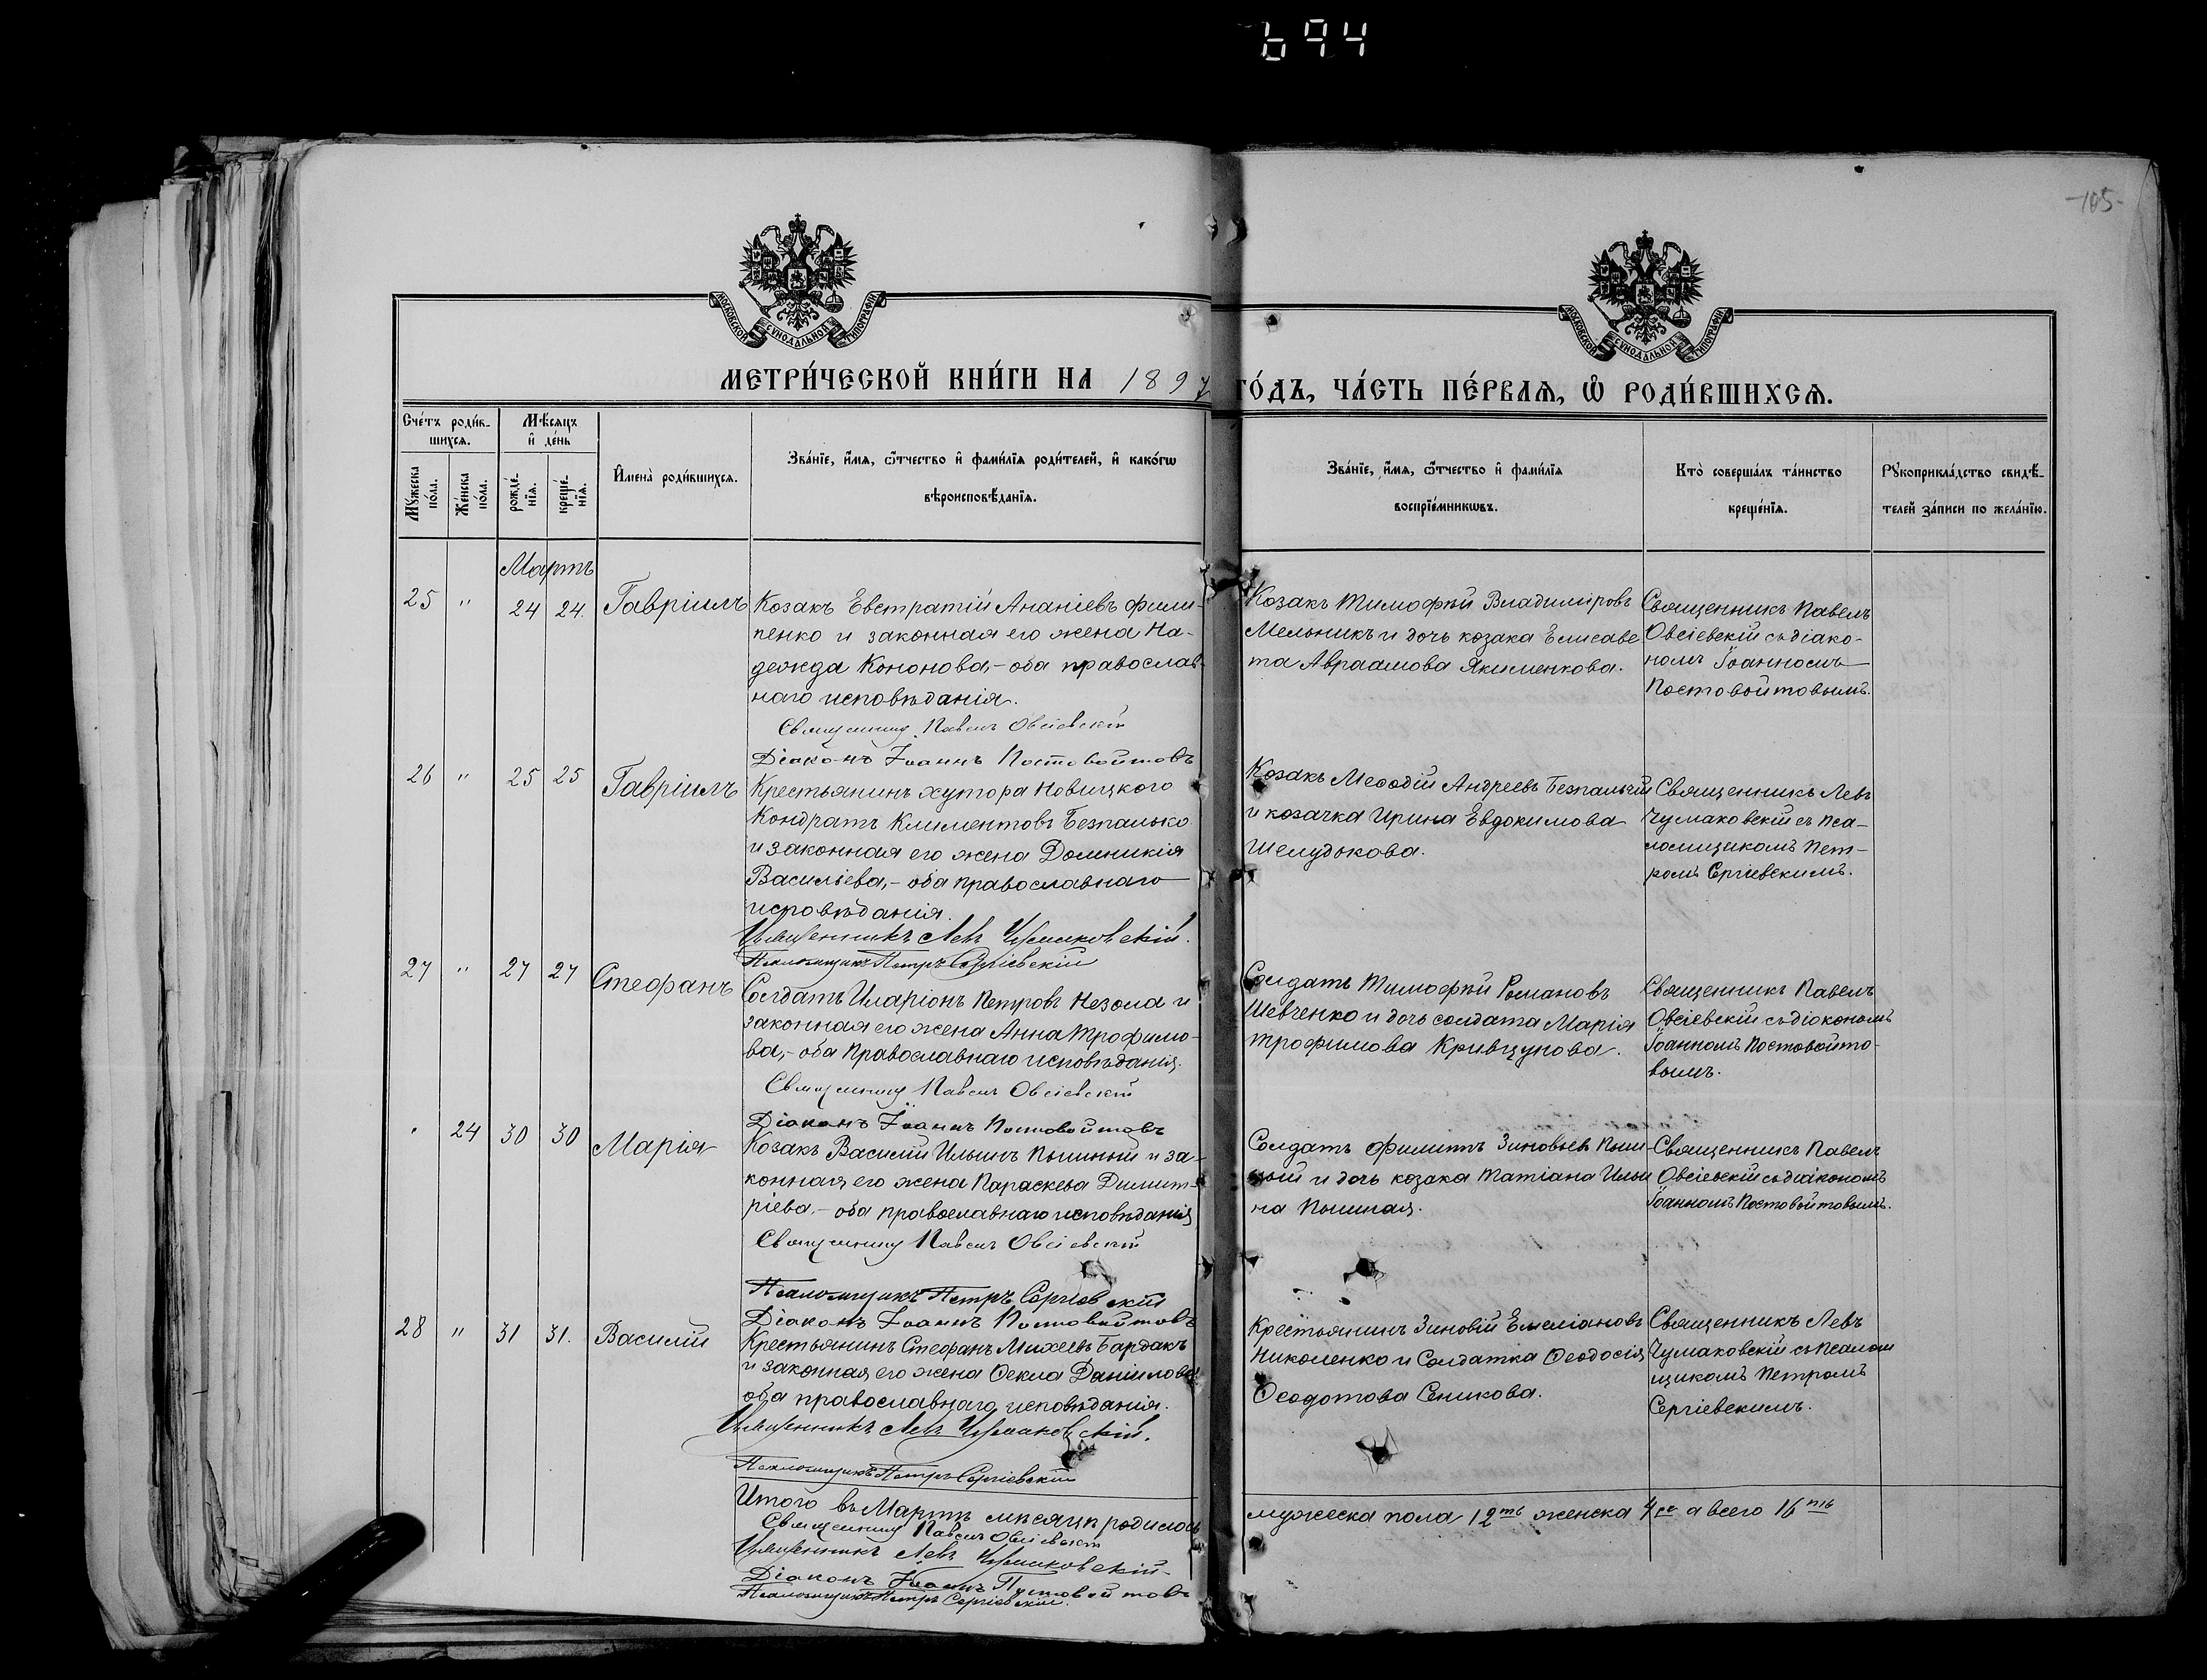 694
-105-
МОСКОВСКОЙ СУНОДАЛЬНОЙ ТИПОГРАФІИ
МОСКОВСКОЙ СУНОДАЛЬНОЙ ТИПОГРАФІИ
МЕТРИ́ЧЕСКОЙ КНИ́ГИ НА 1897 ГО́ДЪ, ЧА́СТЬ ПЕ́РВАѦ, Ѡ РОДИ́ВШИХСѦ.
Сче́тъ роди́в-
шихсѧ.
Мꙋ́жеска
по́ла.
Же́нска
по́ла.
Мѣ́сѧцъ
и҆ де́нь
рожде́-
нїѧ.
креще́-
нїѧ.
И҆мена̀ роди́вшихсѧ.
Зва́нїе, и҆́мѧ, ѻ҆́тчество и҆ фами́лїѧ роди́телей, и҆ како́гѡ
вѣроисповѣ́данїѧ.
Зва́нїе, и҆́мѧ, ѻ҆́тчество и҆ фами́лїѧ
воспрїе́мникѡвъ.
Кто̀ соверша́лъ та́инство
креще́нїѧ.
Рꙋкоприкла́дство свидѣ́-
телей за́писи по жела́нїю.
Мартъ
25 " 24 24. Гавріилъ
Козакъ Евстратій Ананіевъ Фили-
пенко и законная его жена На-
дежда Кононова,- оба православ-
наго исповѣданія.
Священникъ Павелъ Овсіевскій
Діаконъ Іоаннъ Постовойтовъ
Козакъ Тимофѣй Владиміровъ
Мельникъ и дочь козака Елисаве
та Авраамова Якименкова.
Священникъ Павелъ
Овсіевскій съ діако-
номъ Іоанномъ
Постовойтовымъ.
26 " 25 25 Гавріилъ
Крестьянинъ хутора Новицкого
Кондратъ Климентовъ Безпалько
и законная его жена Домникія
Васильева,- оба православнаго
исповѣданія.
Священникъ Левъ Чумаковскій.
Псаломщикъ Петръ Сергіевскій
Козакъ Меѳодій Андреевъ Безпалый
и козачка Ирина Евдокимова
Шелудькова.
Священникъ Левъ
Чумаковскій съ пса-
ломщикомъ Пет-
ромъ Сергіевскимъ.
27 " 27 27 Стефанъ
Солдатъ Иларіонъ Петровъ Незола и
законная его жена Анна Трофимо-
ва,- оба православнаго исповѣданія.
Священникъ Павелъ Овсіевскій
Діаконъ Іоаннъ Постовойтовъ
Солдатъ Тимофѣй Романовъ
Шевченко и дочь солдата Марія
Трофимова Кривцунова.
Священникъ Павелъ
Овсіевскій съ діакономъ
Іоанномъ Постовойто-
вымъ.
" 24 30 30 Марія
Козакъ Василій Ильинъ Пышный и за-
конная его жена Параскева Димит-
ріева,- оба православнаго исповѣданія
Священникъ Павелъ Овсіевскій
Псаломщикъ Петръ Сергіевскій
Діаконъ Іоаннъ Постовойтовъ
Солдатъ Филиппъ Зиновьевъ Пыш-
ный и дочь козака Татіана Ильи
на Пышная.
Священникъ Павелъ
Овсіевскій съ діакономъ
Іоанномъ Постовойтовымъ.
28 " 31 31. Василій
Крестьянинъ Стефанъ Михеевъ Бардакъ
и законная его жена Ѳекла Даніилова
оба православнаго исповѣданія.
Священникъ Левъ Чумаковскій.
Псаломщикъ Петръ Сергіевскій
Крестьянинъ Зиновій Емеліановъ
Николенко и Солдатка Ѳеодосія
Ѳеодотова Сеникова.
Священникъ Левъ
Чумаковскій съ псалом
щикомъ Петромъ
Сергіевскимъ.
Итого въ Мартѣ мѣсяцѣ родилось
мужеска пола 12ть женска 4ре а всего 16ть
Священникъ Павелъ Овсіевскій
Священникъ Левъ Чумаковскій
Діаконъ Іоаннъ Постовойтовъ
Псаломщикъ Петръ Сергіевскій.